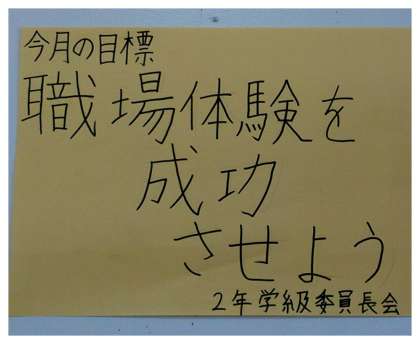 今月の目標
職場体験を
成功
させよう
2年学級委員長会